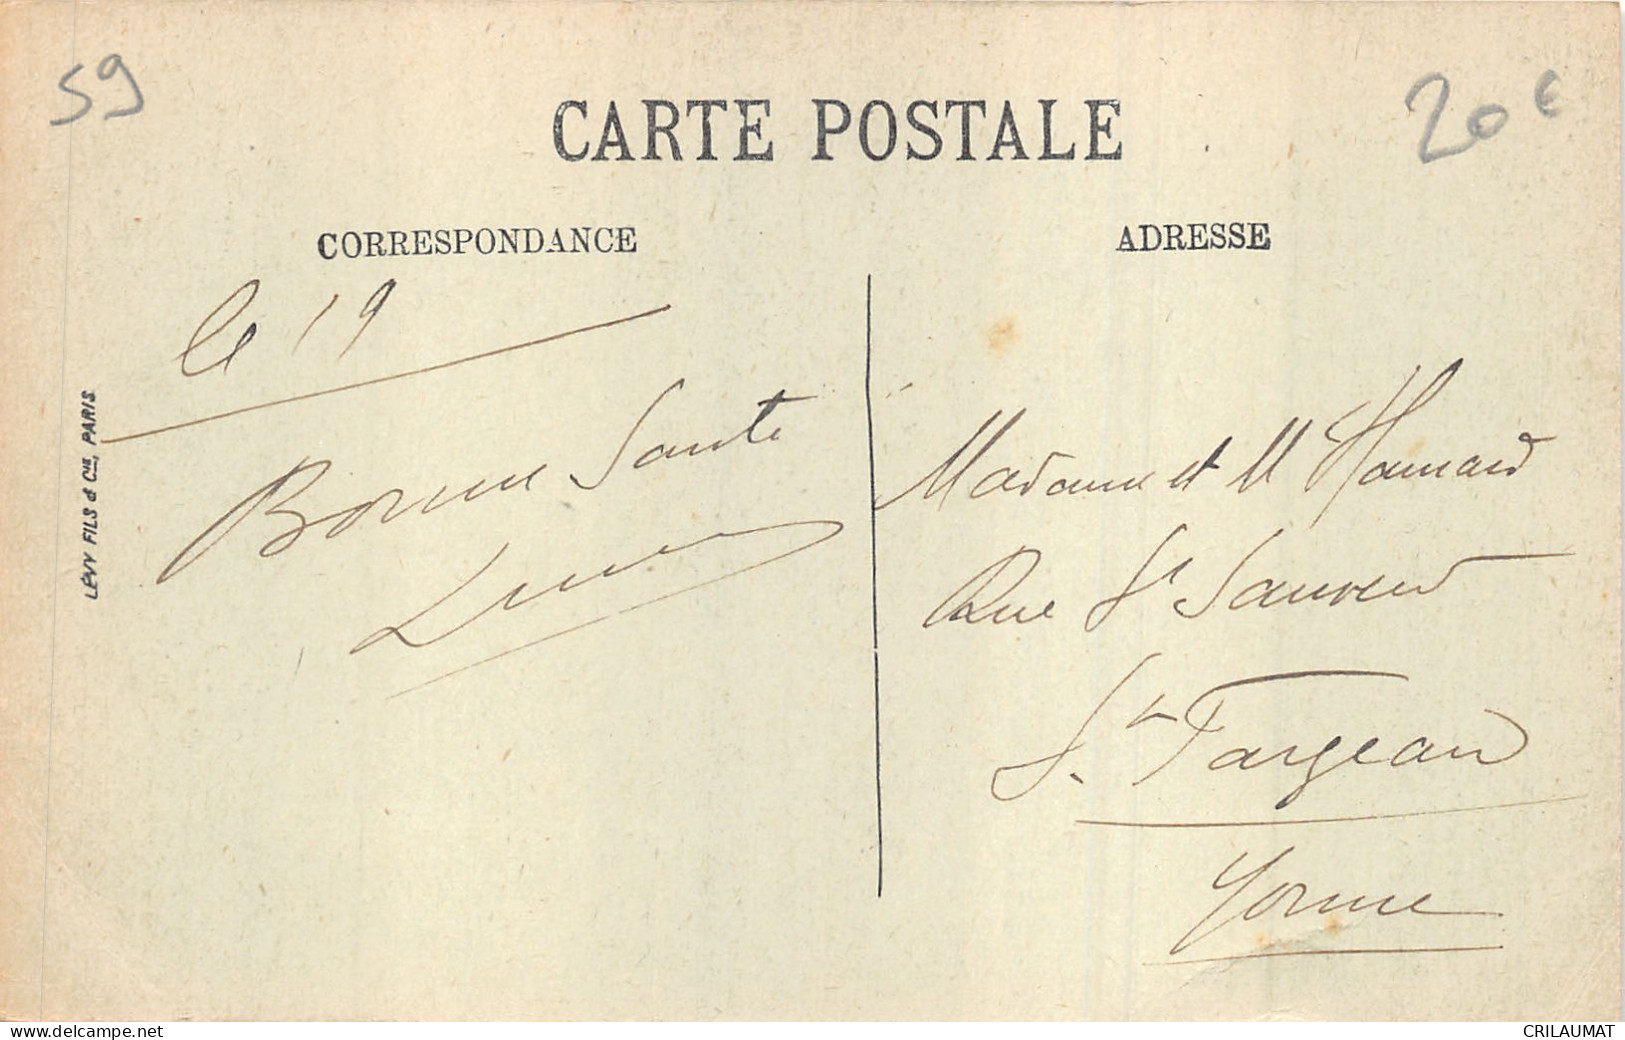 59
20€
CARTE POSTALE
CORRESPONDANCE
ADRESSE
le 19
Bonne Santé
LÉVY FILS & Cie, PARIS
Madame et M
Rue St Sauveur
St Fargeau
Yonne
www.delcampe.net
CRILAUMAT